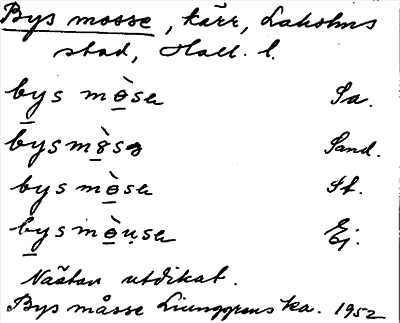 Bys mosse, kärr, Laholms
stad, Hall. l.
bys mò̲sa Sa.
bysmò̲sə Sand.
bys mò̲sa St.
bys mò̲u̩sa Ej.
Nästan utdikat.
Bys måsse Ljunggrens ka. 1952